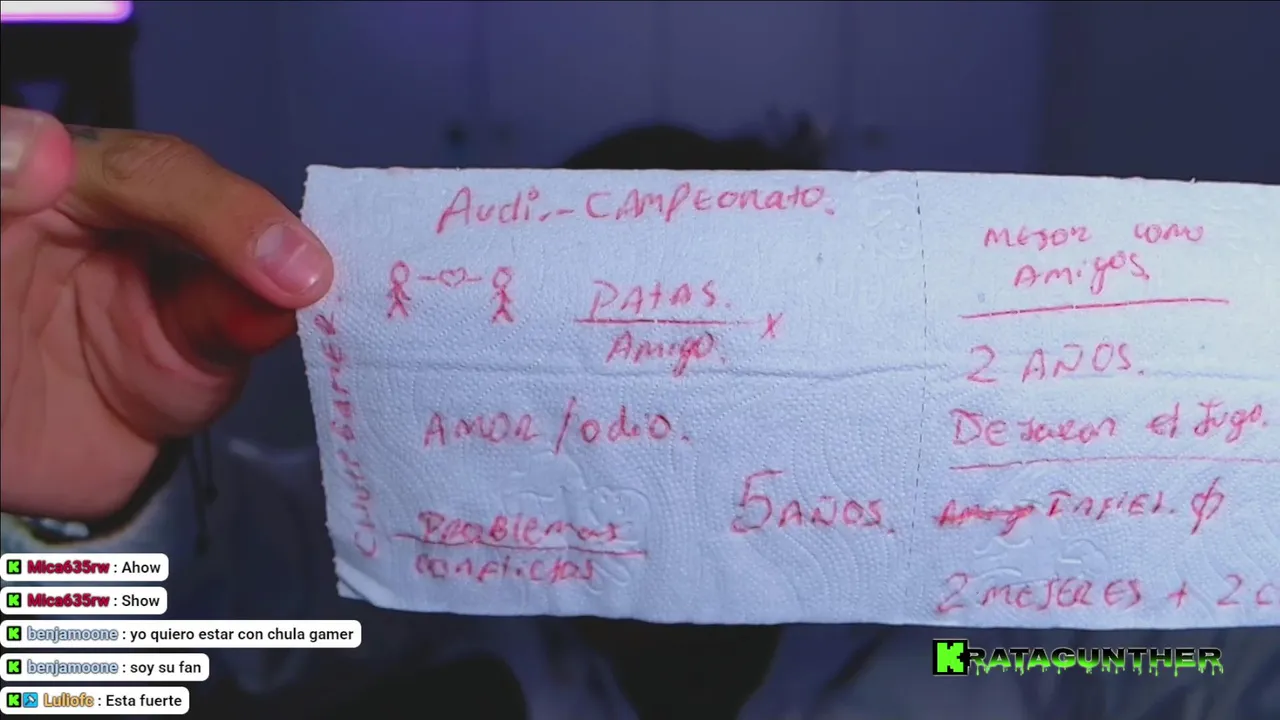 Audi.- CAMPEONATO.
PATAS.
Amigo. X
AMOR / odio.
Problemas
conflictos
5 AÑOS.
CHULA GAMER.
MEJOR como
Amigos
2 AÑOS.
DeJaran el Jugo.
INFIEL
2 MESERES + 2 C
Mica635rw : Ahow
Mica635rw : Show
benjamoone : yo quiero estar con chula gamer
benjamoone : soy su fan
Luliofc : Esta fuerte
KRATAGUNTHER